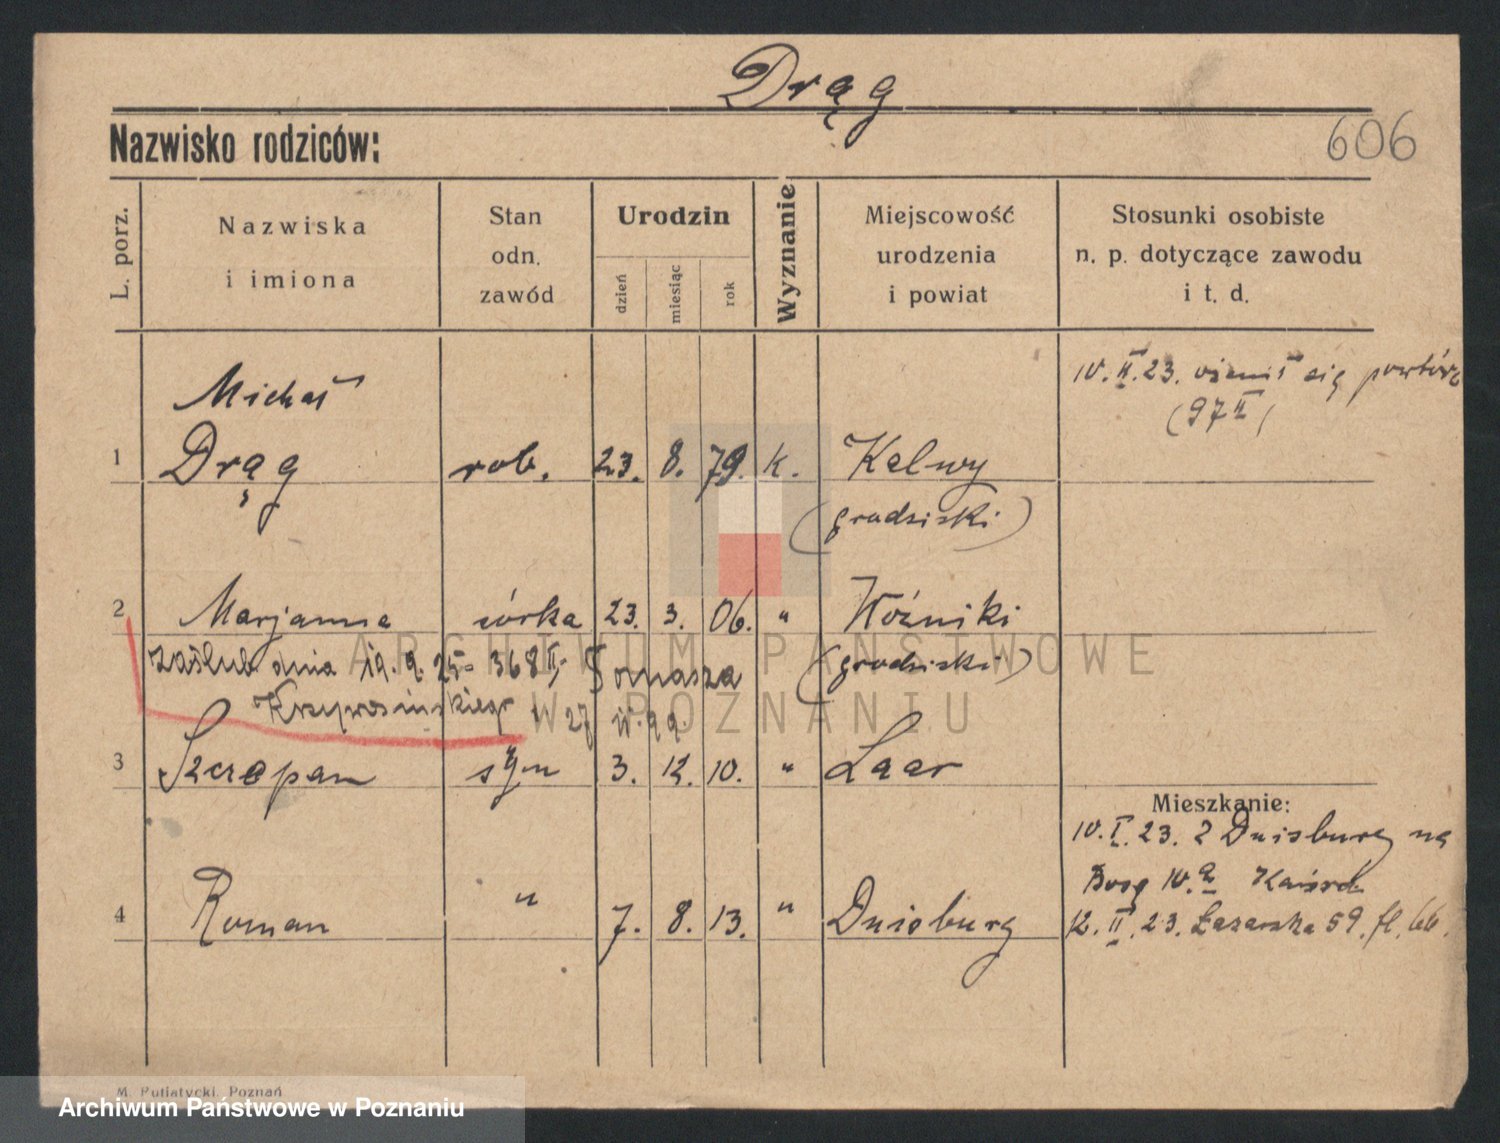 Drąg
Nazwisko rodziców:
606
L. porz.
Nazwiska
i imiona
Stan
odn.
zawód
Urodzin
dzień
miesiąc
rok
Wyznanie
Miejscowość
urodzenia
i powiat
Stosunki osobiste
n. p. dotyczące zawodu
i t. d.
10. II. 23. ożenił się powtórz
(97 II)
Michał
1 Drąg rob. 23. 8. 79. k. Kalwy
(grodziski)
2 Marjanna córka 23. 3. 06. " Woźniki
(grodziski)
zaślub dnia 19. 9. 25 - 368 II, Tomasza
27
3 Szczepan syn 3. 12. 10. " Laar
Mieszkanie:
10. I. 23. z Duisburg na
4 Roman " 7. 8. 13. " Duisburg
12. II. 23. Łazarska 59. fl. 66.
ARCHIWUM PAŃSTWOWE
W POZNANIU
M. Putiatycki, Poznań
Archiwum Państwowe w Poznaniu